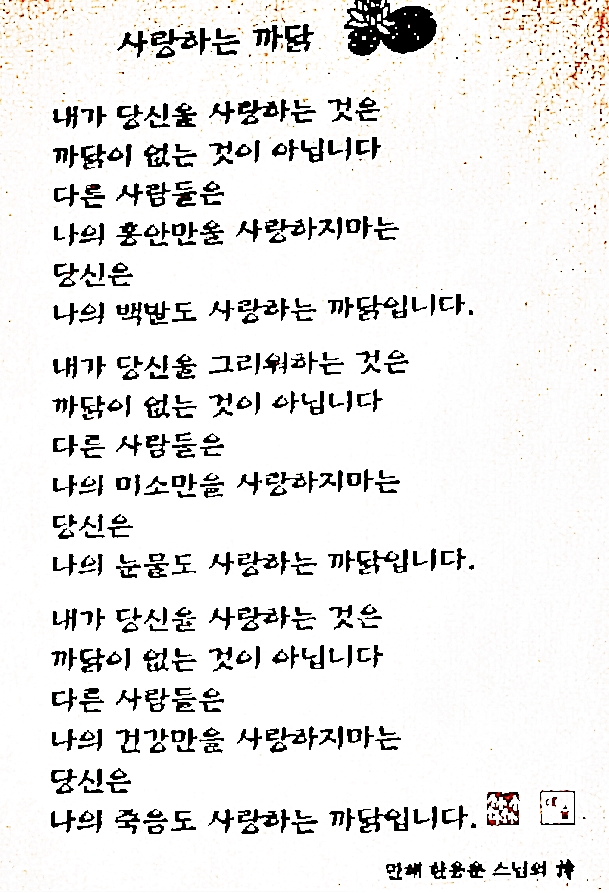 사랑하는 까닭
내가 당신을 사랑하는 것은
까닭이 없는 것이 아닙니다
다른 사람들은
나의 홍안만을 사랑하지마는
당신은
나의 백발도 사랑하는 까닭입니다.
내가 당신을 그리워하는 것은
까닭이 없는 것이 아닙니다
다른 사람들은
나의 미소만을 사랑하지마는
당신은
나의 눈물도 사랑하는 까닭입니다.
내가 당신을 사랑하는 것은
까닭이 없는 것이 아닙니다
다른 사람들은
나의 건강만을 사랑하지마는
당신은
나의 죽음도 사랑하는 까닭입니다.
만해 한용운 스님의 詩